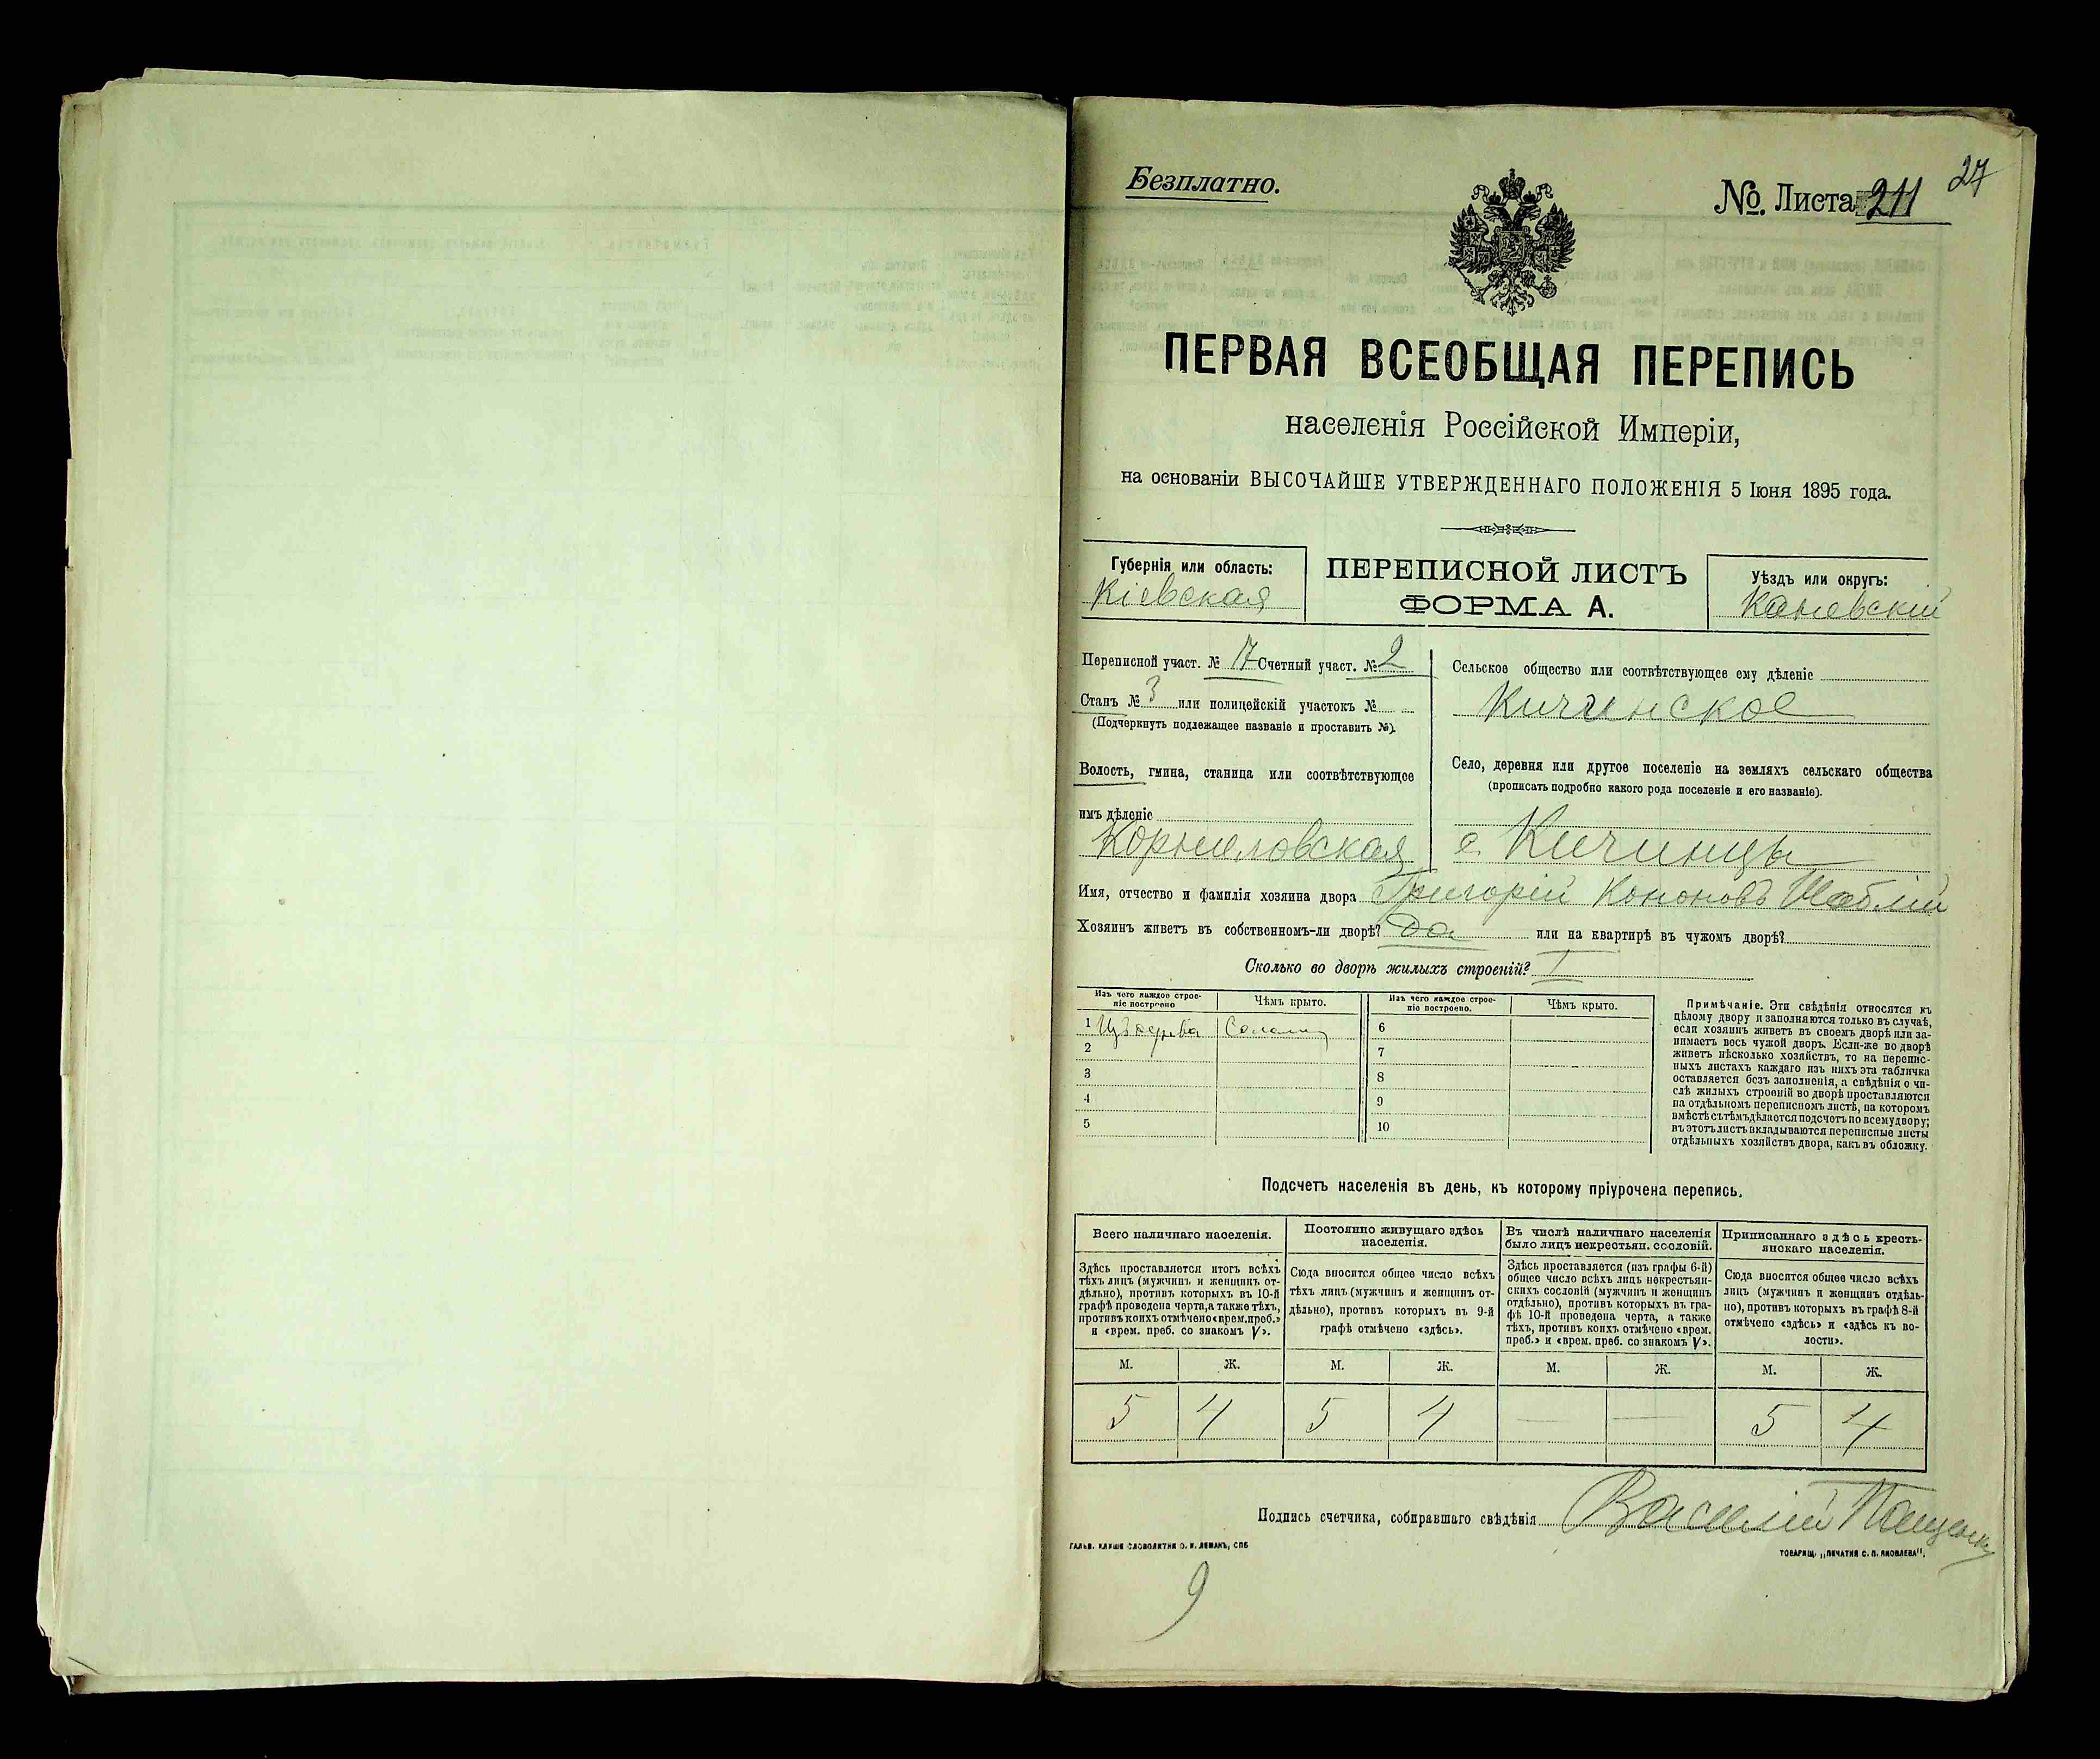 Безплатно.
№. Листа 211
27
ПЕРВАЯ ВСЕОБЩАЯ ПЕРЕПИСЬ
населенія Россійской Имперіи,
на основаніи ВЫСОЧАЙШЕ УТВЕРЖДЕННАГО ПОЛОЖЕНІЯ 5 Іюня 1895 года.
Губернія или область:
Кіевская
ПЕРЕПИСНОЙ ЛИСТЪ
ФОРМА А.
Уѣздъ или округъ:
Каневскій
Переписной участ. № 17 Счетный участ. № 2
Станъ № 3 или полицейскій участокъ №
(Подчеркнуть подлежащее названіе и проставить №).
Волость, гмина, станица или соотвѣтствующее
имъ дѣленіе
Корниловская
Сельское общество или соотвѣтствующее ему дѣленіе
Кичинское
Село, деревня или другое поселеніе на земляхъ сельскаго общества
(прописать подробно какого рода поселеніе и его названіе).
с. Кичинцы
Имя, отчество и фамилія хозяина двора Григорій Кононовъ Шаблій
Хозяинъ живетъ въ собственномъ-ли дворѣ? Да или на квартирѣ въ чужомъ дворѣ?
Сколько во дворѣ жилыхъ строеній? 1
Изъ чего каждое строе-
ніе построено
Чѣмъ крыто.
Изъ чего каждое строе-
ніе построено.
Чѣмъ крыто.
1 Изъ дерева Солом
2
3
4
5
6
7
8
9
10
Примѣчаніе. Эти свѣдѣнія относятся къ
цѣлому двору и заполняются только въ случаѣ,
если хозяинъ живетъ въ своемъ дворѣ или за-
нимаетъ весь чужой дворъ. Если-же во дворѣ
живетъ нѣсколько хозяйствъ, то на перепис-
ныхъ листахъ каждаго изъ нихъ эта табличка
оставляется безъ заполненія, а свѣдѣнія о чи-
слѣ жилыхъ строеній во дворѣ проставляются
на отдѣльномъ переписномъ листѣ, на которомъ
вмѣстѣ съ тѣмъ дѣлается подсчетъ по всему двору;
въ этотъ листъ вкладываются переписные листы
отдѣльныхъ хозяйствъ двора, какъ въ обложку.
Подсчетъ населенія въ день, къ которому пріурочена перепись.
Всего наличнаго населенія.
Постоянно живущаго здѣсь
населенія.
Въ числѣ наличнаго населенія
было лицъ некрестьян. сословій.
Приписаннаго здѣсь кресть-
янскаго населенія.
Здѣсь проставляется итогъ всѣхъ
тѣхъ лицъ (мужчинъ и женщинъ от-
дѣльно), противъ которыхъ въ 10-й
графѣ проведена черта, а также тѣхъ,
противъ коихъ отмѣчено «врем. преб.»
и «врем. преб. со знакомъ V».
Сюда вносится общее число всѣхъ
тѣхъ лицъ (мужчинъ и женщинъ от-
дѣльно), противъ которыхъ въ 9-й
графѣ отмѣчено «здѣсь».
Здѣсь проставляется (изъ графы 6-й)
общее число всѣхъ лицъ некрестьян-
скихъ сословій (мужчинъ и женщинъ
отдѣльно), противъ которыхъ въ гра-
фѣ 10-й проведена черта, а также
тѣхъ, противъ коихъ отмѣчено «врем.
преб.» и «врем. преб. со знакомъ V».
Сюда вносится общее число всѣхъ
лицъ (мужчинъ и женщинъ отдѣль-
но), противъ которыхъ въ графѣ 8-й
отмѣчено «здѣсь» и «здѣсь къ во-
лости».
М. Ж. М. Ж. М. Ж. М. Ж.
5 4 5 4 — — 5 4
Подпись счетчика, собиравшаго свѣдѣнія Василій Пащенко
ГАЛЬВ. КЛИШЕ СЛОВОЛИТНИ О. И. ЛЕМАНЪ, СПБ
ТОВАРИЩ. „ПЕЧАТНЯ С. П. ЯКОВЛЕВА".
9